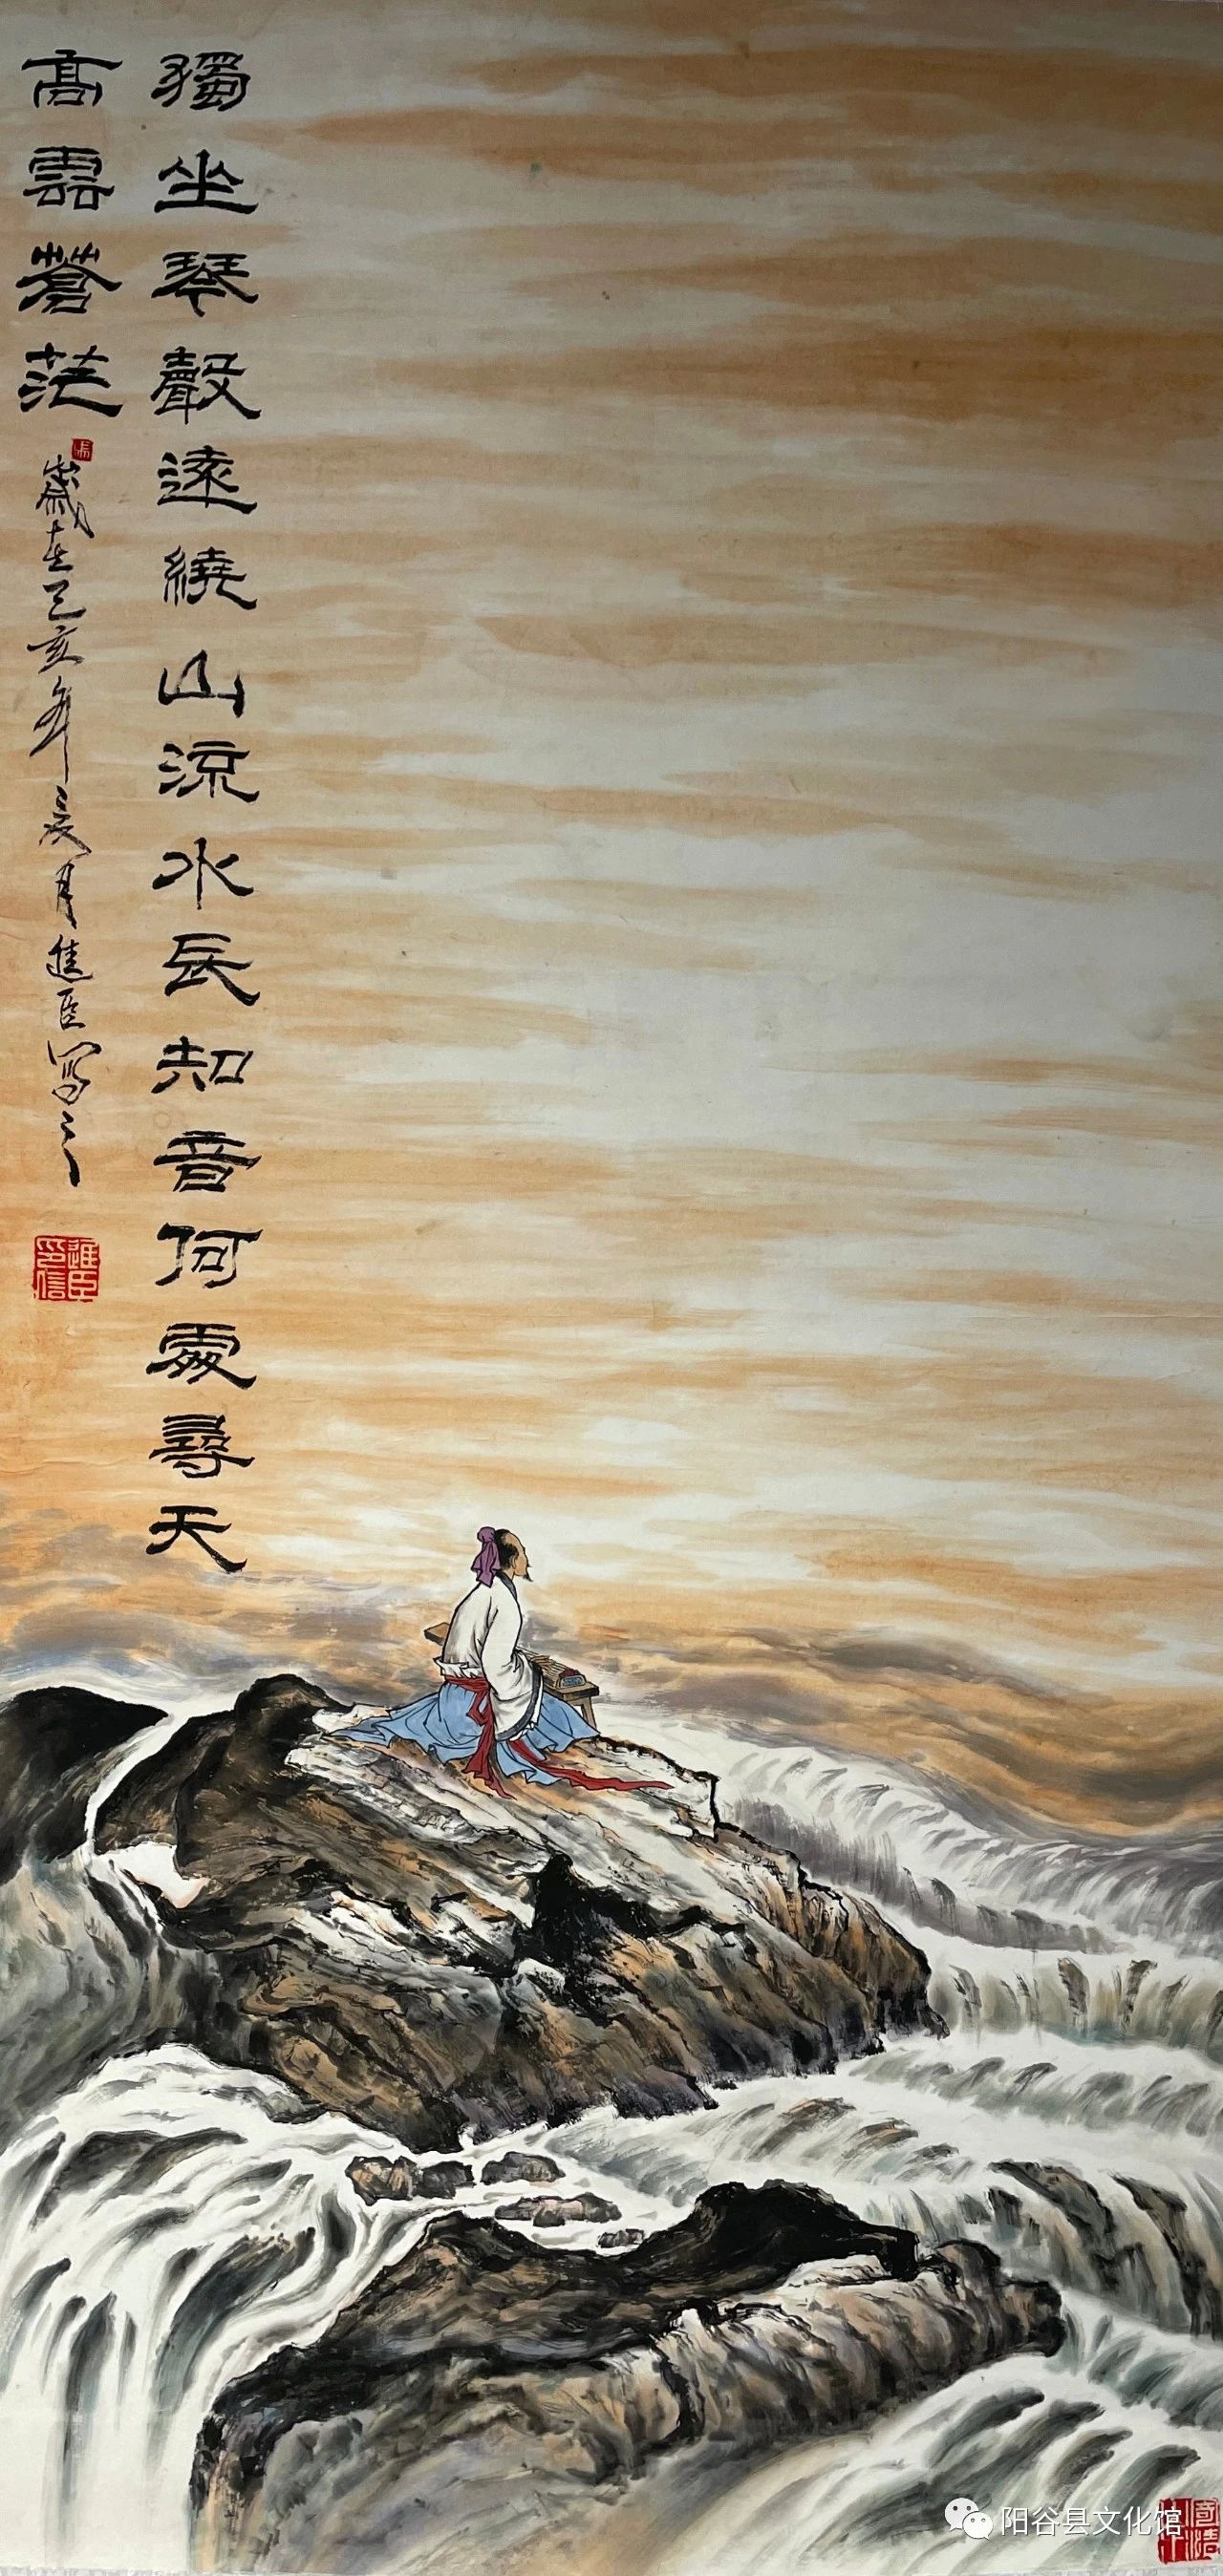 獨坐琴聲遠繞山流水長知音何處尋天
高雲蒼茫
歲在己亥年夏月進臣寫之
進臣印信
阳谷县文化馆